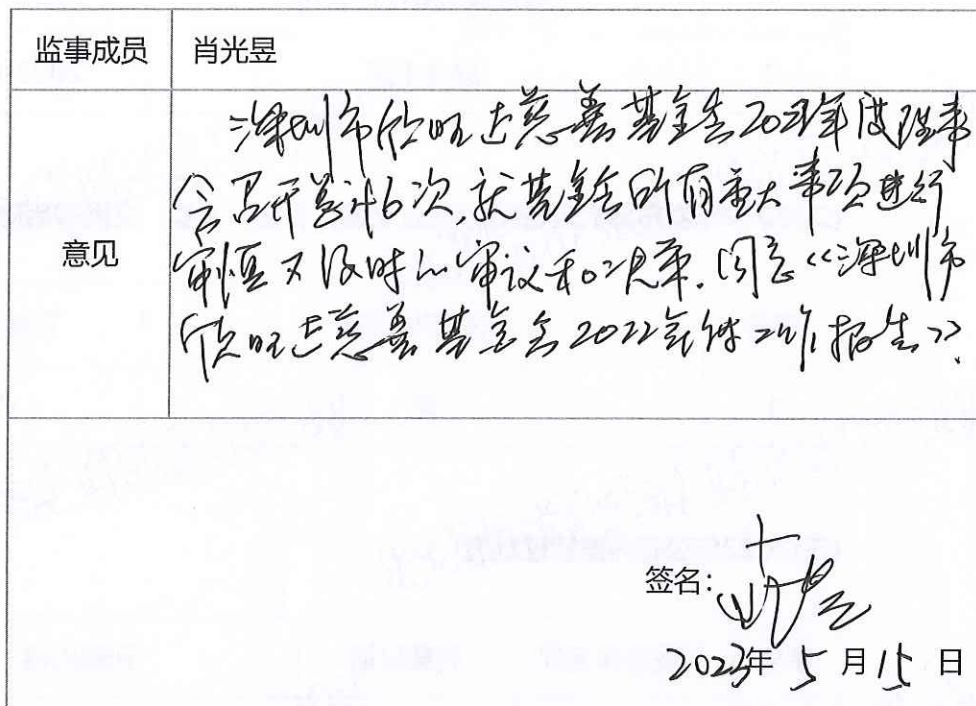 监事成员 肖光昱
意见
深圳市欣旺达慈善基金会2022年度理事
会召开总计6次,就基金会所有重大事项进行
审慎又及时的审议和决策.同意《深圳市
欣旺达慈善基金会2022年度工作报告》.
签名:
2023年 5 月 15 日